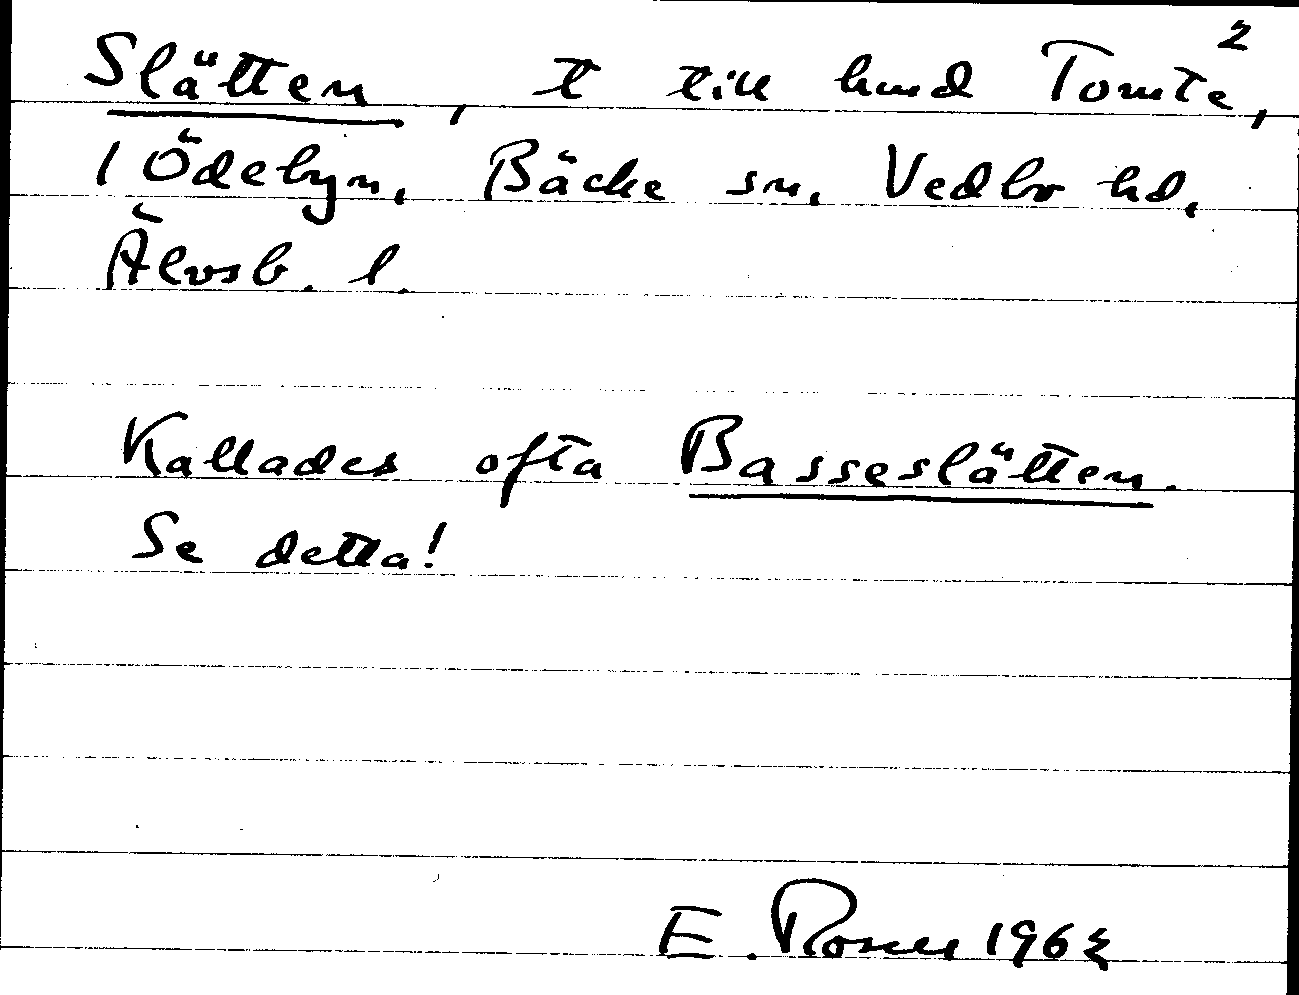 2
Slätten, t till hmd Tomte,
1 Ödebyn, Bäcke sn, Vedbo hd,
Älvsb. l.
Kallades ofta Basseslätten.
Se detta!
E. 196